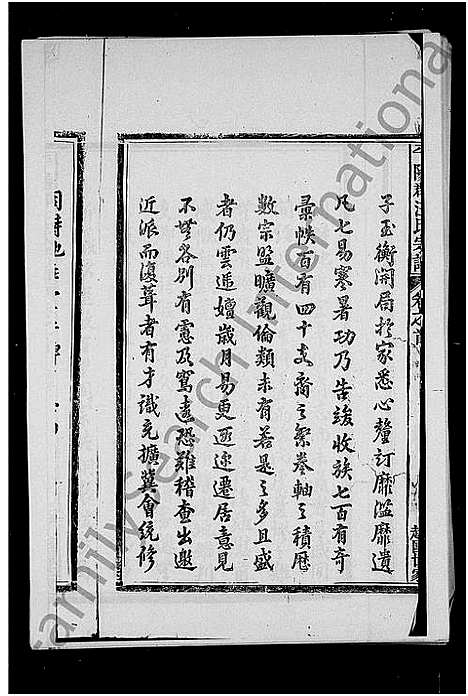 平陽郡汪氏宗譜 卷之首
子玉衡開局於家悉心釐訂靡濫靡遺
凡七易寒暑功乃告竣收族七百有奇
彙帙百有四十支裔之繁卷軸之積歷
數宗盟曠觀倫類未有若是之多且盛
者仍雲遞嬗歲月易更遐迩遷居意見
不無各別有憲及窵遠恐難稽查出邀
近派而復葺者有才識充擴冀會統修
Family Search International